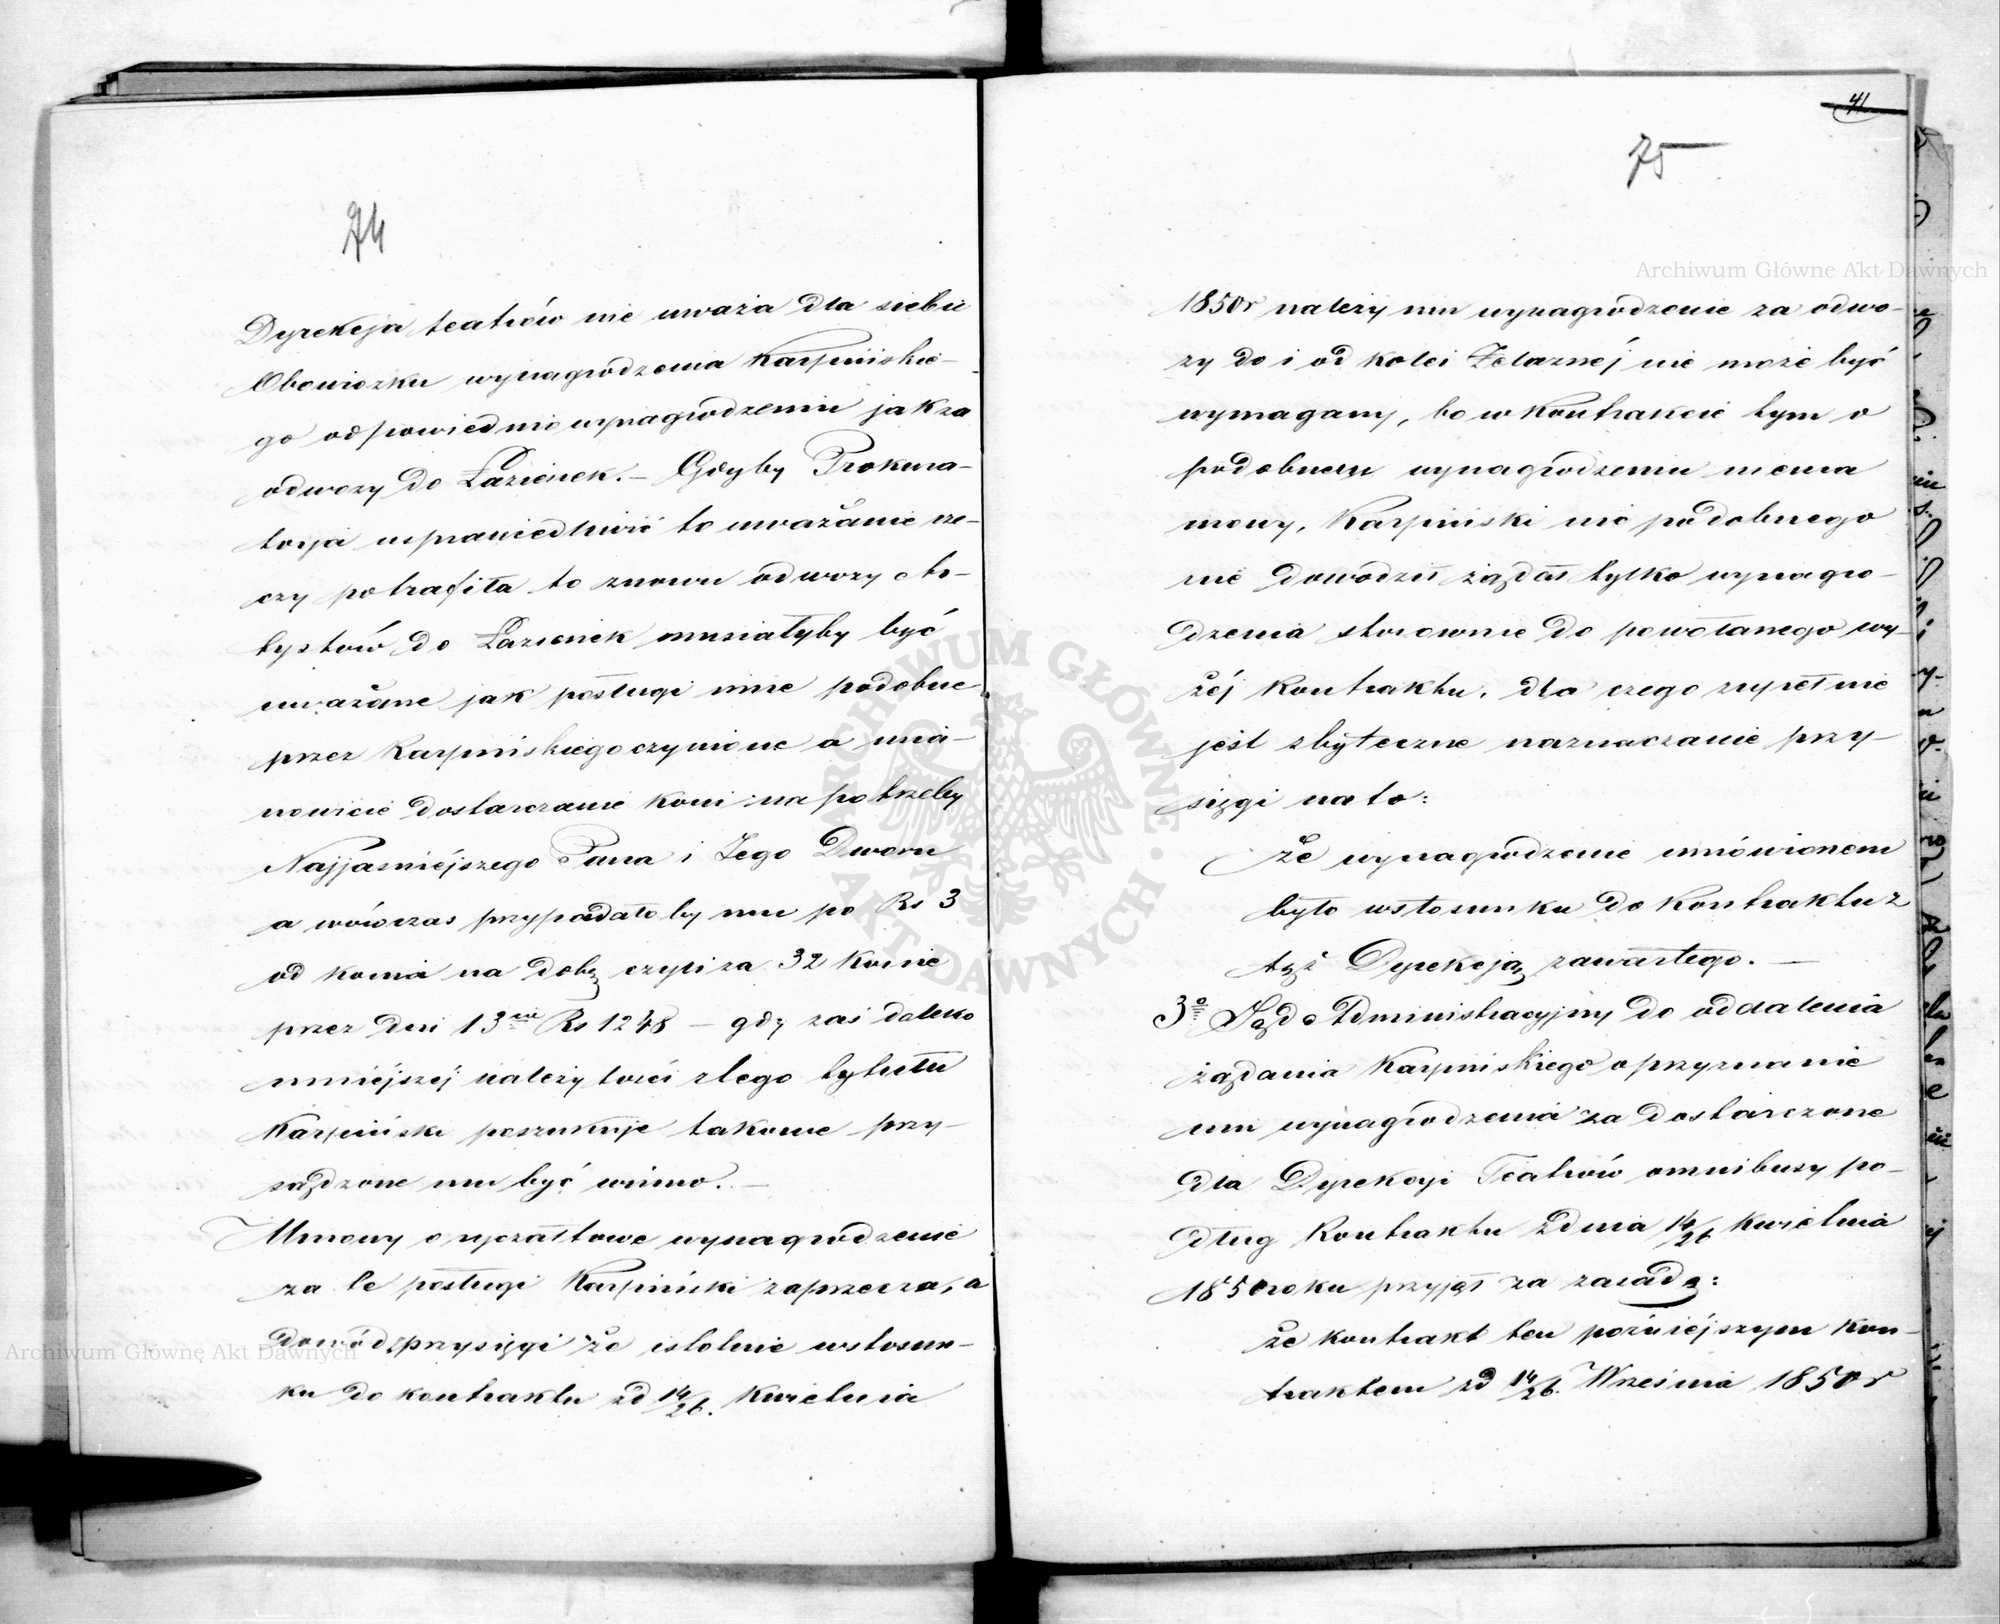 74
Dyrekcja teatrów nie uważa dla siebie
Obowiązku wynagrodzenia Karpińskie-
go odpowiednie wynagrodzeniu jak za
odwozy do Łazienek. — Gdyby Prokura-
torja usprawiedliwić to uważanie rze-
czy potrafiła to znowu odwozy
do Łazienek musiałyby być
uważane jak posługi inne podobne
przez Karpińskiego czynione a mia-
nowicie dostarczanie koni na potrzeby
Najjaśniejszego Pana i Jego Dworu
a wówczas przypadałoby mu po Rs 3
od konia na dobę czyli za 32 konie
przez dni 13cie Rs 1248 — gdy zaś daleko
mniejszéj należytości z tego tytułu
Karpiński poszukuje takowe przy-
sądzone mu być winno. —
Umowy o ryczałtowe wynagrodzenie
za te posługi Karpiński zaprzecza, a
dowód przysięgi że istotnie w stosun-
ku do kontraktu zd 14/26. Kwietnia
41
75
1850r należy mu wynagrodzenie za odwo-
zy do i od kolei Żelaznéj nie może być
wymagany, bo w kontrakcie tym o
podobnem wynagrodzeniu niema
mowy, Karpiński nic podobnego
nie dowodził żądał tylko wynagro-
dzenia stosownie do powołanego wy-
żéj kontraktu, dla czego zupełnie
jest zbyteczne naznaczanie przy-
sięgi na to:
że wynagrodzenie umówionem
było w stosunku do kontraktu z
tąż Dyrekcją zawartego. —
3o Sąd Administracyjny do oddalenia
żądania Karpińskiego o przyznanie
mu wynagrodzenia za dostarczone
dla Dyrekcyi Teatrów omnibusy po-
dług kontraktu z dnia 14/26 Kwietnia
1850 roku przyjął za zasadę:
że kontrakt ten późniéjszym kon-
traktem zd 14/26. Września 1850r
Archiwum Główne Akt Dawnych
ARCHIWUM GŁÓWNE AKT DAWNYCH
Archiwum Główne Akt Dawnych